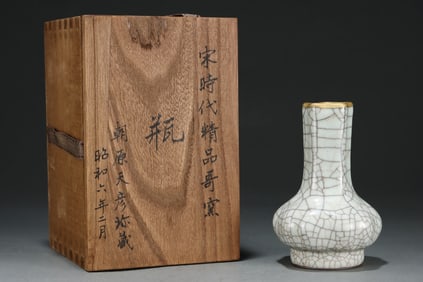 宋時代精品哥窯
瓶
朝原天彦珍藏
昭和六年二月